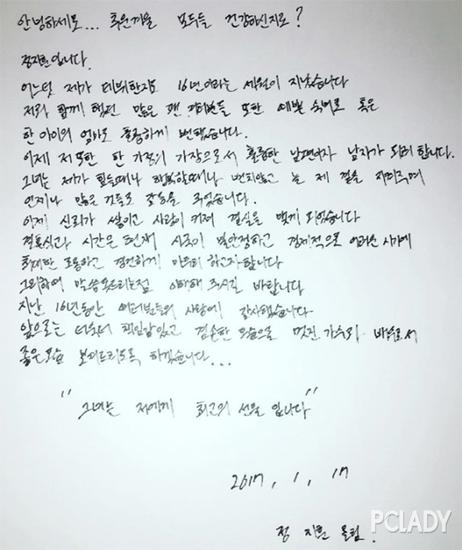 안녕하세요... 추운겨울 모두들 건강하신지요?
정지훈입니다.
어느덧 제가 데뷔한지도 16년이라는 세월이 지났습니다
저와 함께 했던 많은 팬 여러분들 또한 예쁜 숙녀로 혹은
한 아이의 엄마로 훌륭하게 변했습니다.
이제 저 또한 한 가정의 가장으로서 훌륭한 남편이자 남자가 되려 합니다.
그녀는 제가 힘들때나 행복할때나 변치않고 늘 제 곁을 지켜주며
언제나 많은 것들로 감동을 주었습니다.
이제 신뢰가 쌓이고 사랑이 커져 결실을 맺게 되었습니다
결혼식과 시간은 현재 시국이 불안정하고 경제적으로 어려운 시기에
최대한 조용하고 경건하게 마무리 하고자합니다
그리하여 말씀못드리는점 이해해 주시길 바랍니다
지난 16년동안 여러분들의 사랑에 감사했습니다
앞으로는 더욱더 책임감있고 겸손한 모습으로 멋진 가수와 배우로서
좋은모습 보여드리도록 하겠습니다...
"그녀는 저에게 최고의 선물 입니다"
2017, 1, 17
정 지훈 올림.
PCLADY